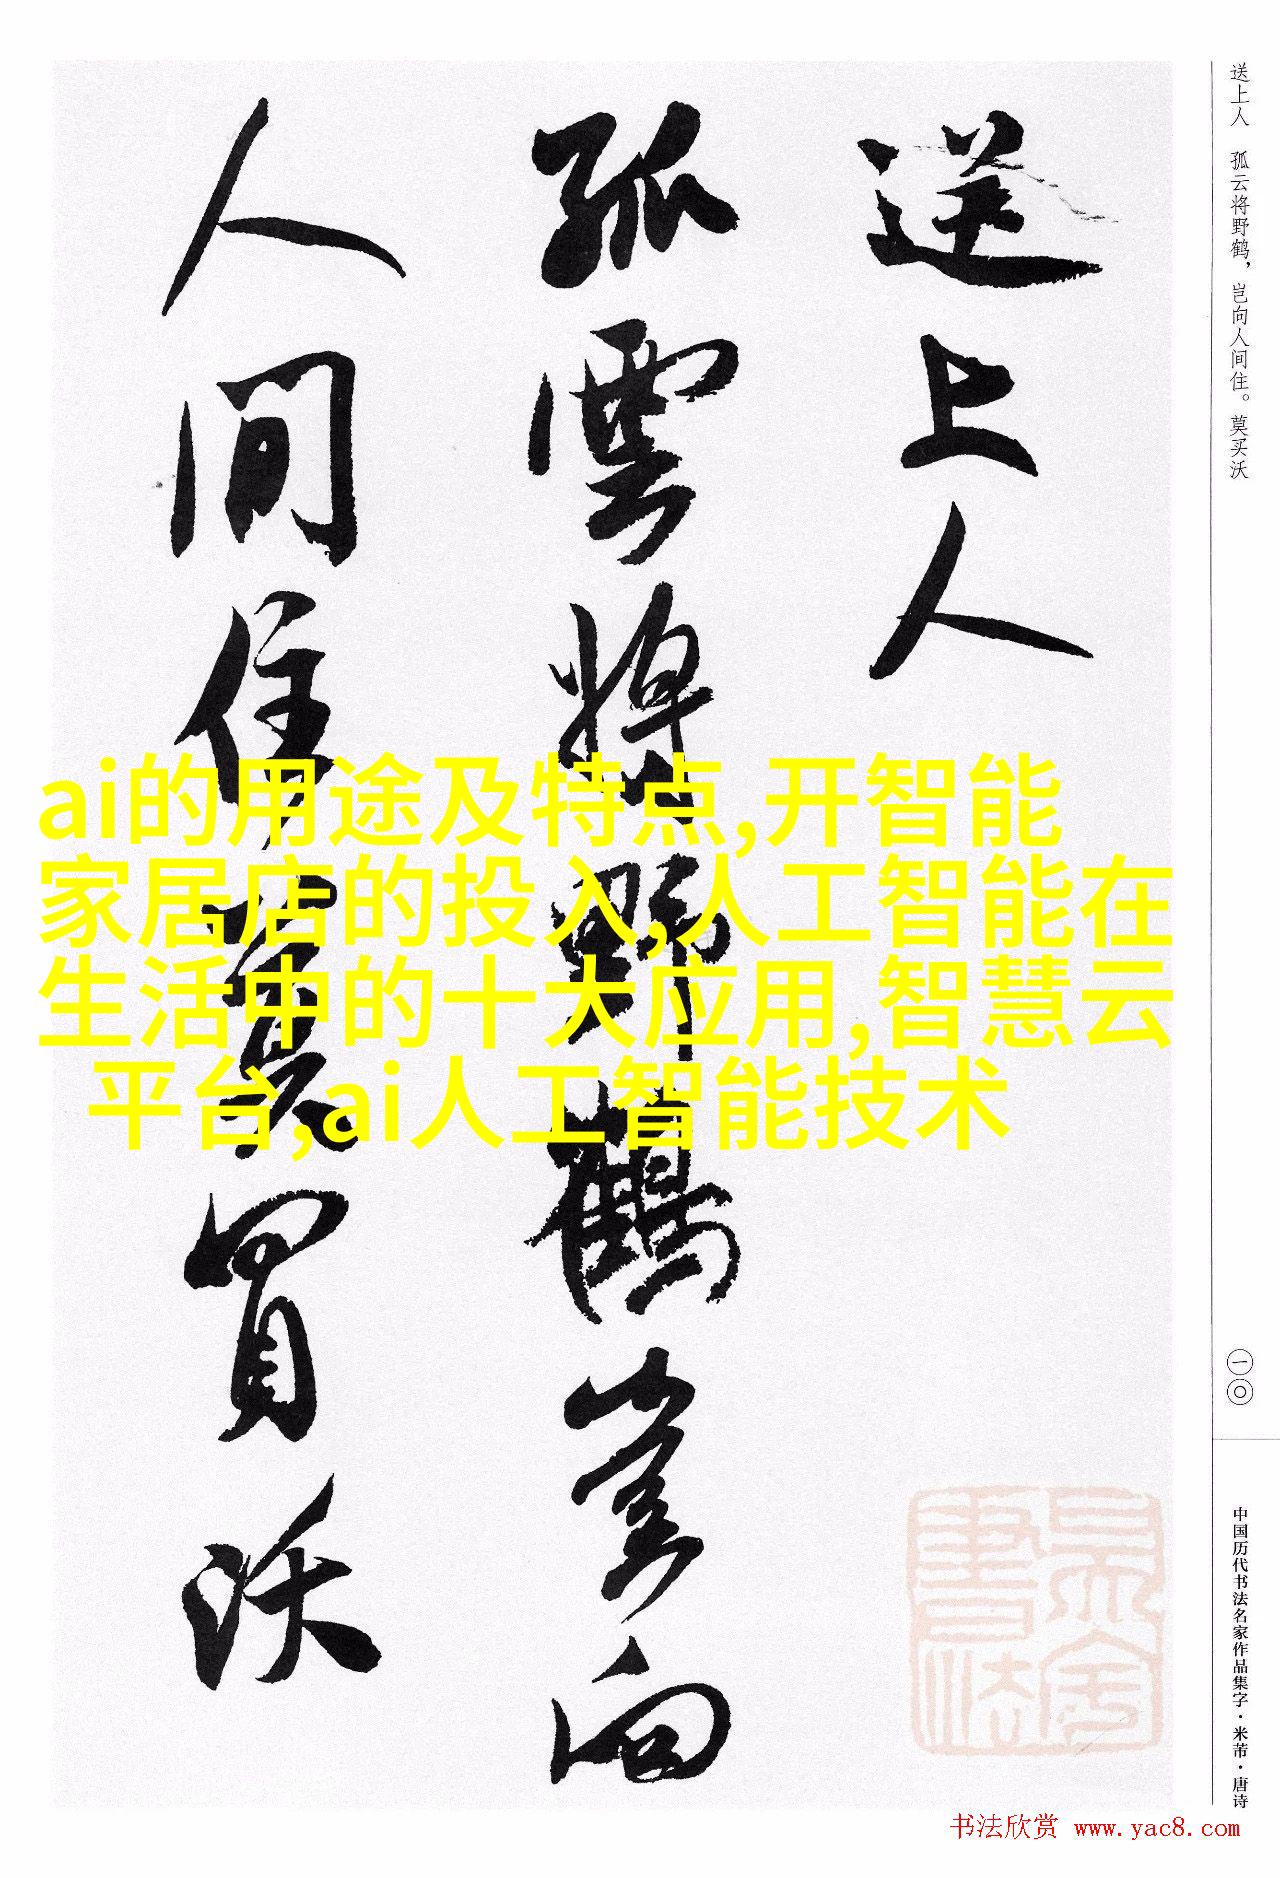 送上人
孤雲将野鶴豈向
人间住莫買沃
ai的用途及特点,开智能
家居店的投入,人工智能在
生活中的十大应用,智慧云
平台,ai人工智能技术
送上人 孤云将野鹤，岂向人间住。莫买沃
一〇
中国历代书法名家作品集字·米芾·唐诗
书法欣赏 www.yac8.com